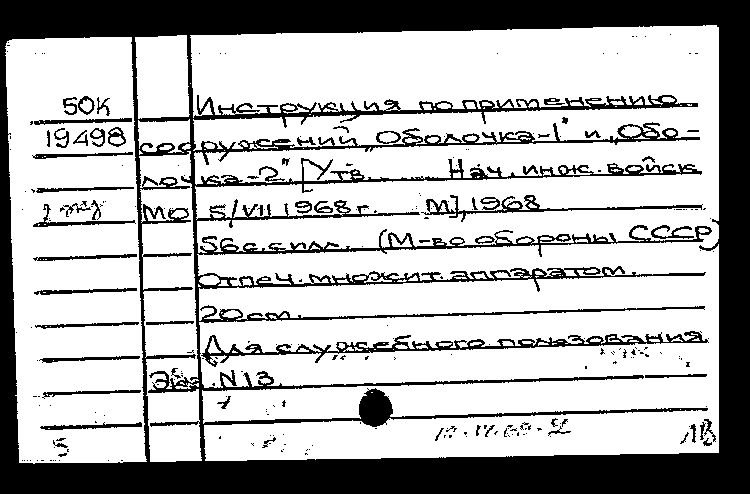 50К Инструкция по применению
19498 сооружений „Оболочка-1" и „Обо-
лочка-2". [Утв. ... Нач. инж. войск
2 экз МО 5/VII 1968 г. М], 1968
56 с. с илл. (М-во обороны СССР)
Отпеч. множит. аппаратом.
20 см.
Для служебного пользования
Экз. N13
5